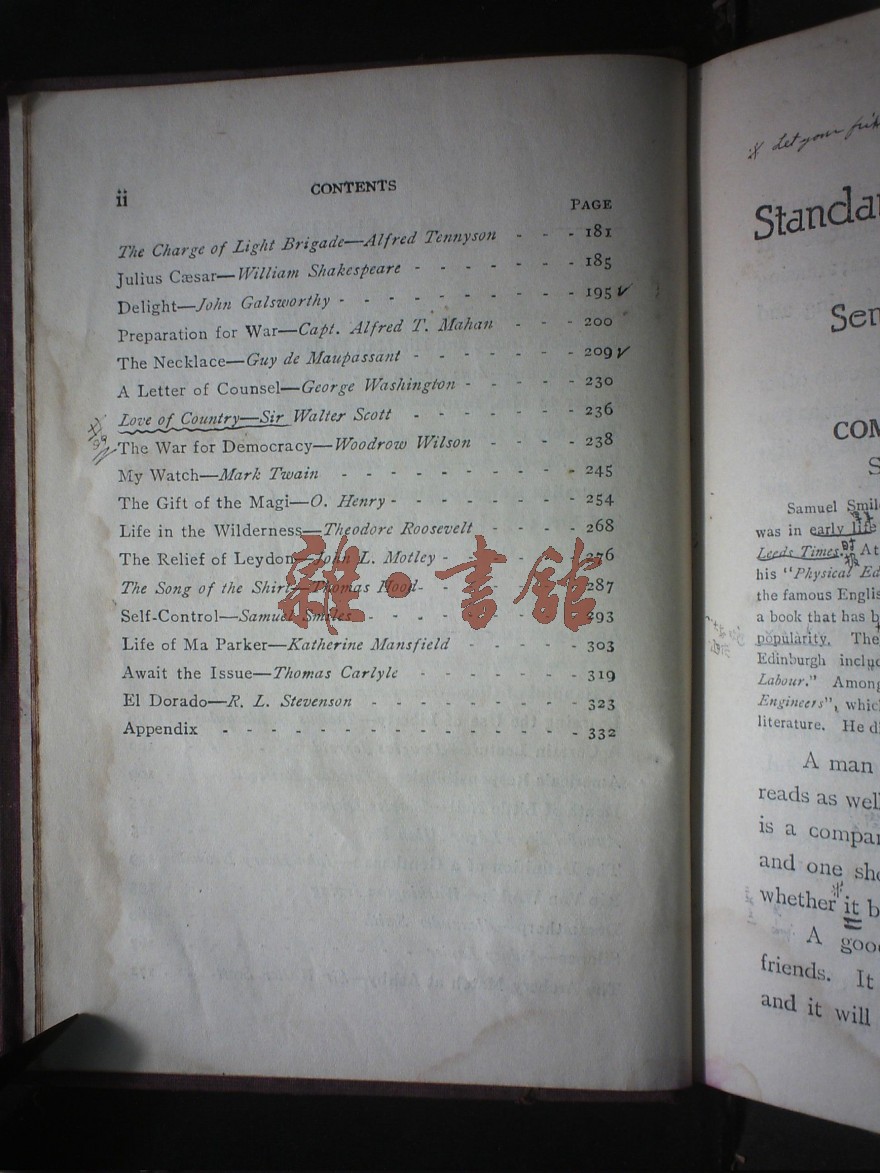 ii CONTENTS
PAGE
The Charge of Light Brigade—Alfred Tennyson - - - 181
Julius Cæsar—William Shakespeare - - - - - - - 185
Delight—John Galsworthy - - - - - - - - - 195 ✓
Preparation for War—Capt. Alfred T. Mahan - - - 200
The Necklace—Guy de Maupassant - - - - - - - 209 ✓
A Letter of Counsel—George Washington - - - - - 230
Love of Country—Sir Walter Scott - - - - - - - 236
The War for Democracy—Woodrow Wilson - - - - 238
My Watch—Mark Twain - - - - - - - - - - 245
The Gift of the Magi—O. Henry - - - - - - - - 254
Life in the Wilderness—Theodore Roosevelt - - - - 268
The Relief of Leydon—John L. Motley - - - - - - 276
The Song of the Shirt—Thomas Hood - - - - - - - 287
Self-Control—Samuel Smiles - - - - - - - - - 293
Life of Ma Parker—Katherine Mansfield - - - - - 303
Await the Issue—Thomas Carlyle - - - - - - - 319
El Dorado—R. L. Stevenson - - - - - - - - - 323
Appendix - - - - - - - - - - - - - - - 332
雜·書館
Let your
Standa
Sen
COM
S
Samuel Smil
was in early life
Leeds Times. At
his "Physical Ed
the famous Englis
a book that has b
popularity. The
Edinburgh inclu
Labour." Among
Engineers", whic
literature. He d
A man
reads as well
is a compa
and one sho
whether it b
A goo
friends. It
and it will